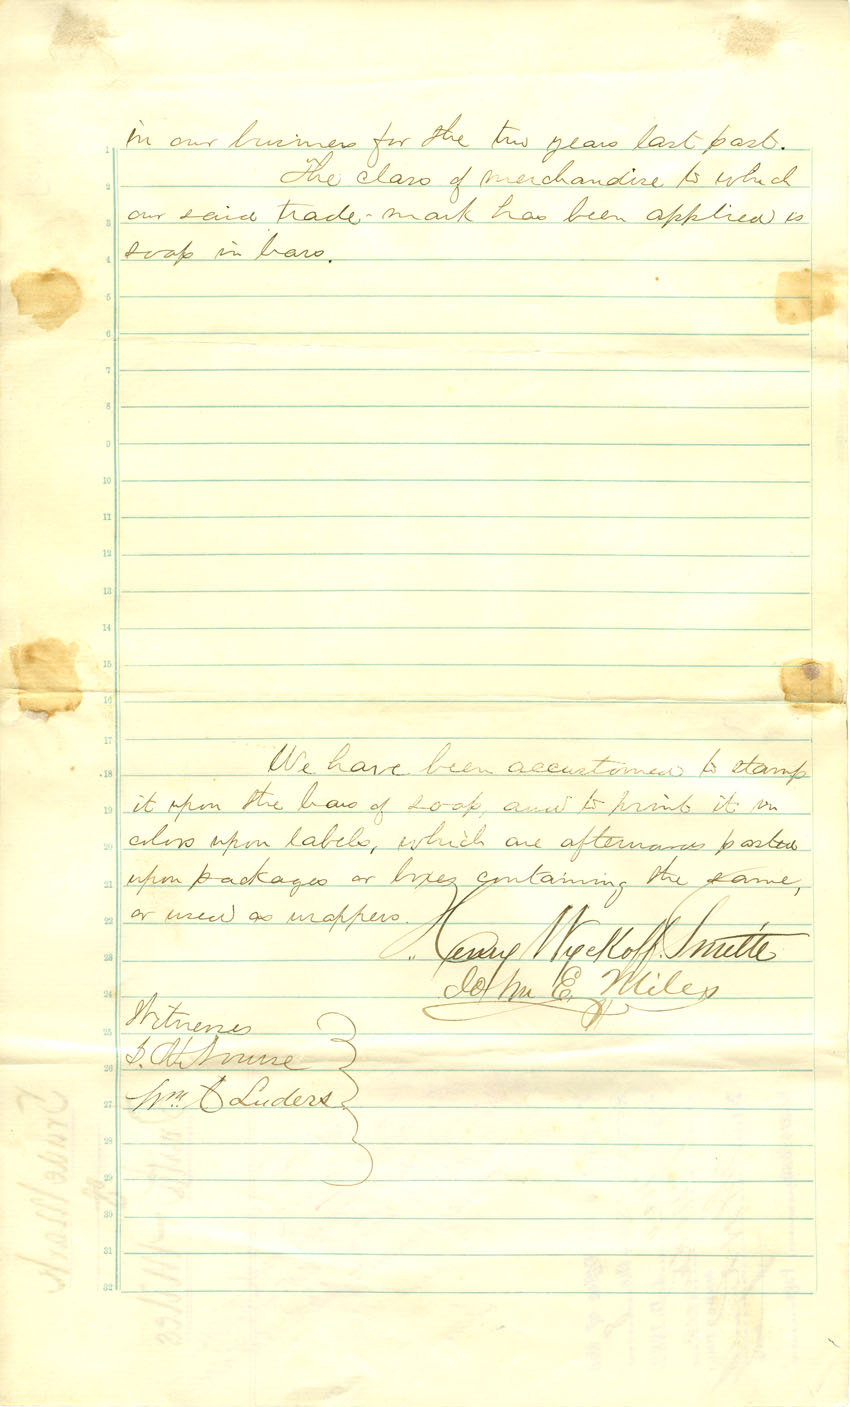 in our business for the two years last past.
The class of merchandise to which
our said trade-mark has been applied is
soap in bars.
We have been accustomed to stamp
it upon the bars of soap, and to print it in
colors upon labels, which are afterwards pasted
upon packages or boxes containing the same,
or used as wrappers.
Henry Wyckoff Smith
John E. Miles
Witnesses
Wm C Luders
1
2
3
4
5
6
7
8
9
10
11
12
13
14
15
16
17
18
19
20
21
22
23
24
25
26
27
28
29
30
31
32